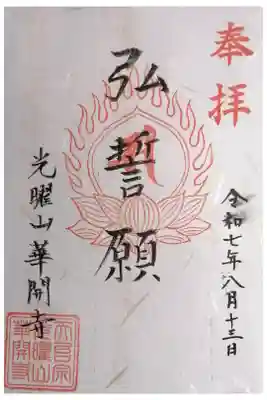 奉拝
令和七年八月十三日
弘誓願
光曜山華開寺